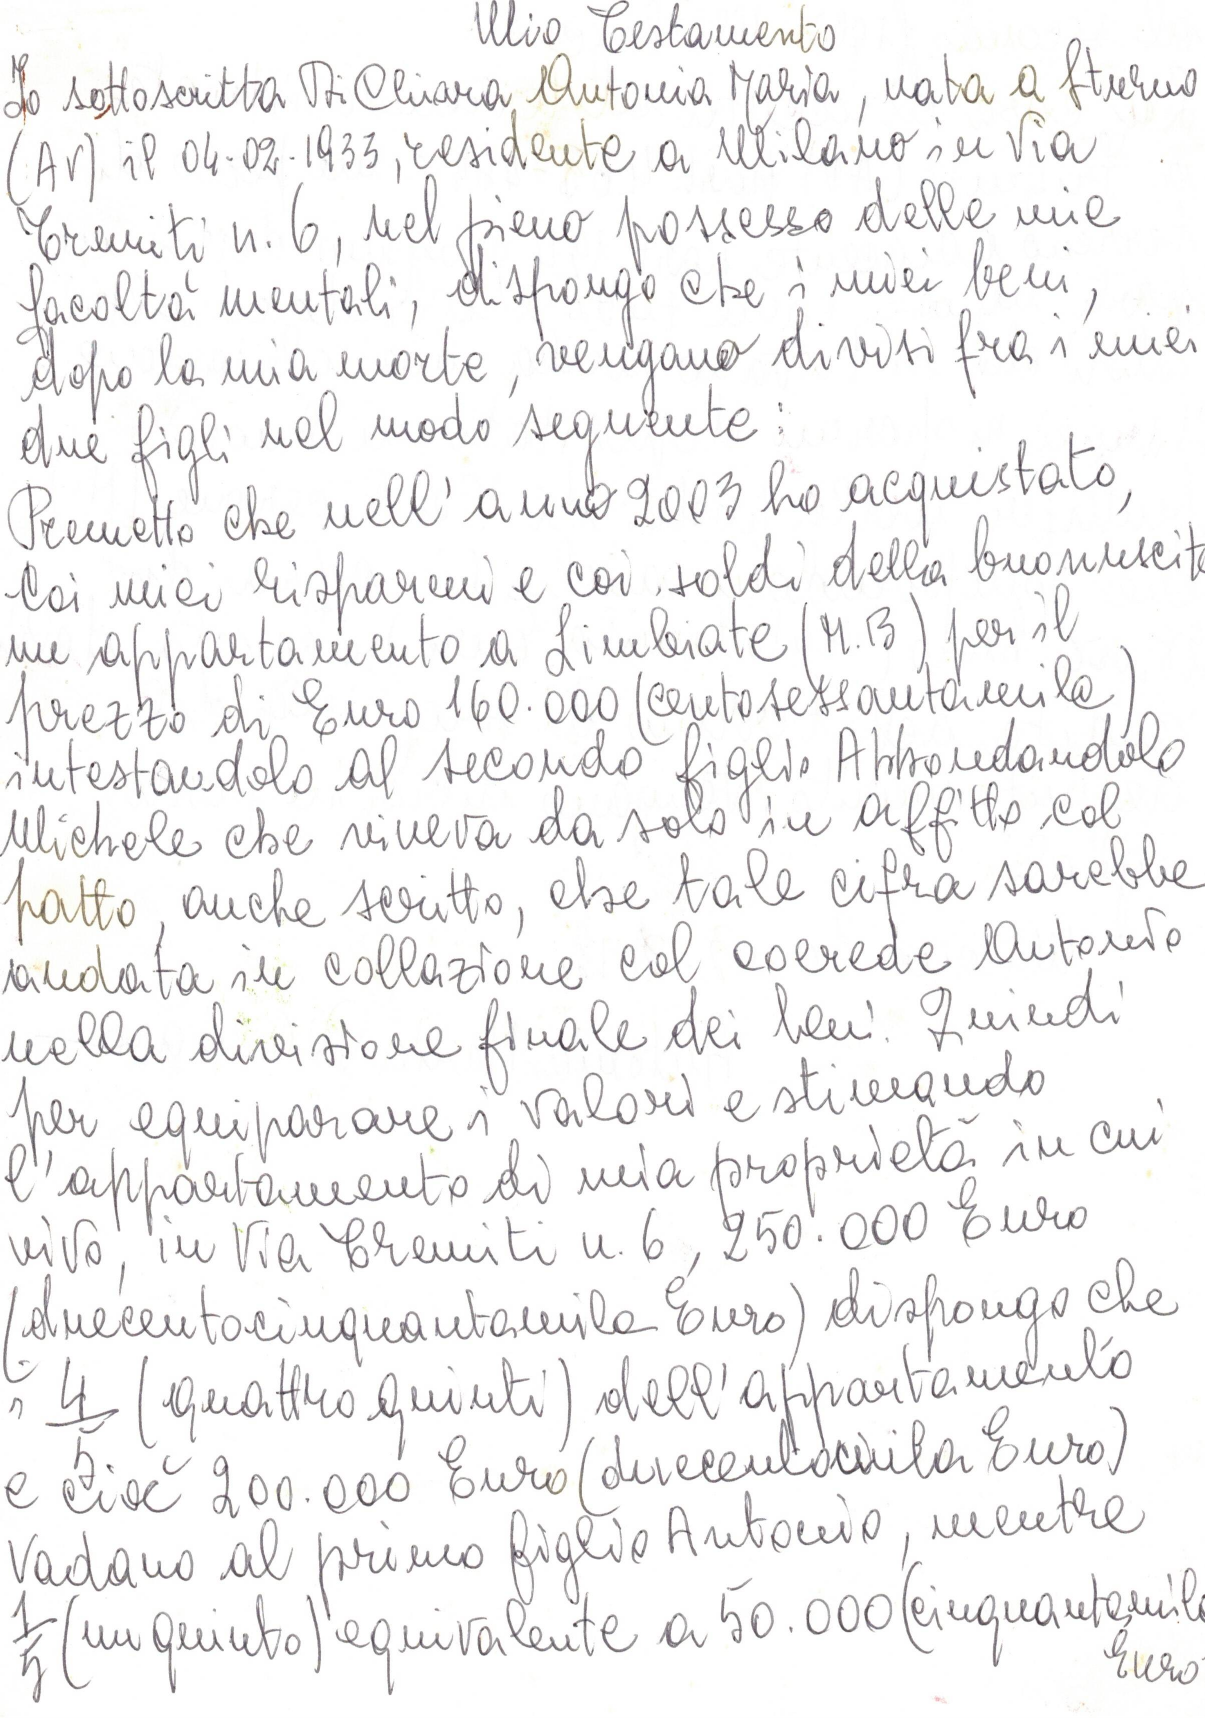 Mio Testamento
Io sottoscritta Di Chiara Antonia Maria, nata a Sturno
(AV) il 04-02-1933, residente a Milano in Via
Tremiti n. 6, nel pieno possesso delle mie
facoltà mentali, dispongo che i miei beni,
dopo la mia morte, vengano divisi fra i miei
due figli nel modo seguente:
Premetto che nell'anno 2003 ho acquistato,
coi miei risparmi e coi soldi della buonuscita
un appartamento a Limbiate (M.B) per il
prezzo di Euro 160.000 (centosessantamila)
intestandolo al secondo figlio Abbondandolo
Michele che viveva da solo in affitto col
patto, anche scritto, che tale cifra sarebbe
andata in collazione col coerede Antonio
nella divisione finale dei beni. Quindi
per equiparare i valori e stimando
l'appartamento di mia proprietà in cui
vivo, in Via Tremiti n. 6, 250.000 Euro
(duecentocinquantamila Euro) dispongo che
i 4/5 (quattro quinti) dell'appartamento
e cioè 200.000 Euro (duecentomila Euro)
vadano al primo figlio Antonio, mentre
1/5 (un quinto) equivalente a 50.000 (cinquantamila
Euro